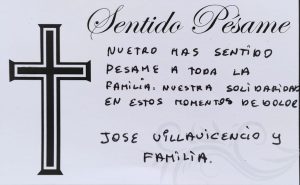 Sentido Pésame
NUETRO MAS SENTIDO
PESAME A TODA LA
FAMILIA. NUESTRA SOLIDARIDAD
EN ESTOS MOMENTOS DE DOLOR
JOSE VILLAVICENCIO Y
FAMILIA.